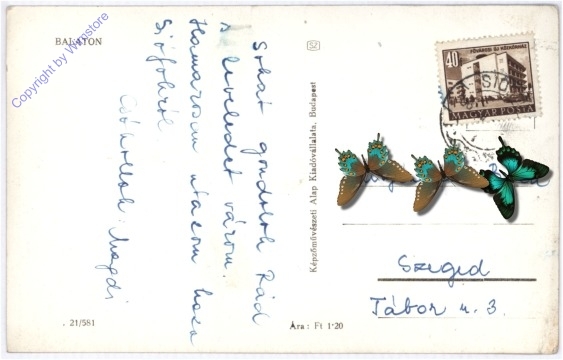 BALATON
Copyright by Wmstore
Sokat gondolok Rád
s leveledet várom.
Hamarosan utazom haza
Siófokról.
Csókollak: Magdi
21/581
Képzőművészeti Alap Kiadóvállalata, Budapest
Ára: Ft 1·20
40
FŐVÁROSI ÚJ KÖZKÓRHÁZ
MAGYAR POSTA
SIÓ
Szeged
Tábor u. 3.